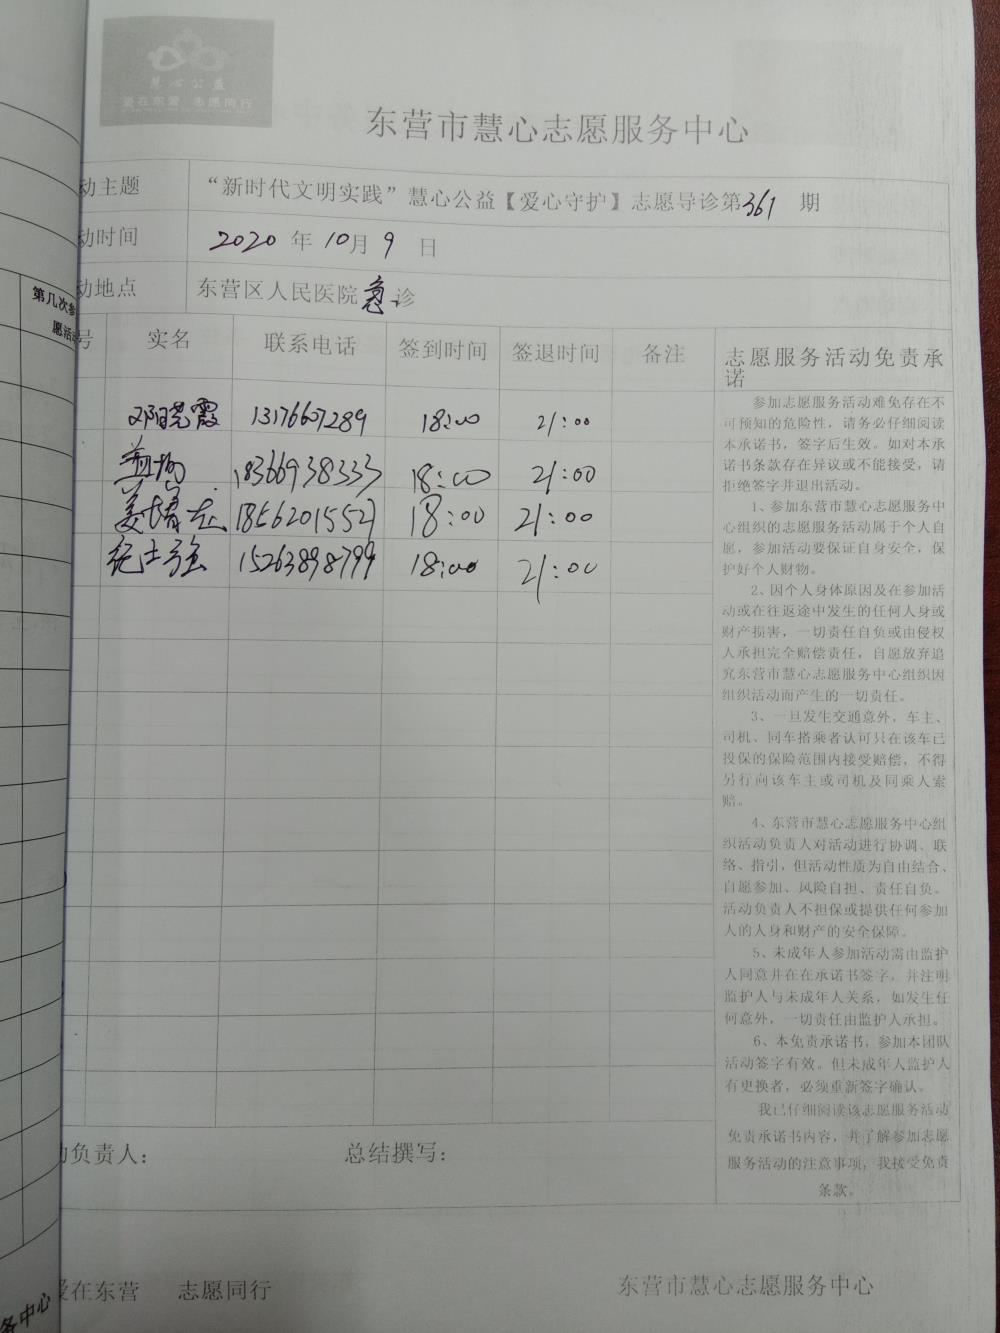 慧心公益
爱在东营 志愿同行
东营市慧心志愿服务中心
动主题
“新时代文明实践”慧心公益【爱心守护】志愿导诊第361 期
动时间
2020 年 10月 9 日
动地点
东营区人民医院急诊
第几次参
愿活动
号 实名 联系电话 签到时间 签退时间 备注
邓阳尧霞 13176607289 18:00 21:00
18366938333 18:00 21:00
18562015527 18:00 21:00
纪士强 15263898799 18:00 21:00
志愿服务活动免责承
诺
参加志愿服务活动难免存在不
可预知的危险性，请务必仔细阅读
本承诺书，签字后生效。如对本承
诺书条款存在异议或不能接受，请
拒绝签字并退出活动。
1、参加东营市慧心志愿服务中
心组织的志愿服务活动属于个人自
愿，参加活动要保证自身安全，保
护好个人财物。
2、因个人身体原因及在参加活
动或在往返途中发生的任何人身或
财产损害，一切责任自负或由侵权
人承担完全赔偿责任，自愿放弃追
究东营市慧心志愿服务中心组织因
组织活动而产生的一切责任。
3、一旦发生交通意外，车主、
司机、同车搭乘者认可只在该车已
投保的保险范围内接受赔偿，不得
另行向该车主或司机及同乘人索
赔。
4、东营市慧心志愿服务中心组
织活动负责人对活动进行协调、联
络、指引，但活动性质为自由结合、
自愿参加、风险自担、责任自负。
活动负责人不担保或提供任何参加
人的人身和财产的安全保障。
5、未成年人参加活动需由监护
人同意并在在承诺书签字，并注明
监护人与未成年人关系，如发生任
何意外，一切责任由监护人承担。
6、本免责承诺书，参加本团队
活动签字有效。但未成年人监护人
有更换者，必须重新签字确认。
我已仔细阅读该志愿服务活动
免责承诺书内容，并了解参加志愿
服务活动的注意事项，我接受免责
条款。
动负责人： 总结撰写：
爱在东营 志愿同行 东营市慧心志愿服务中心
务中心